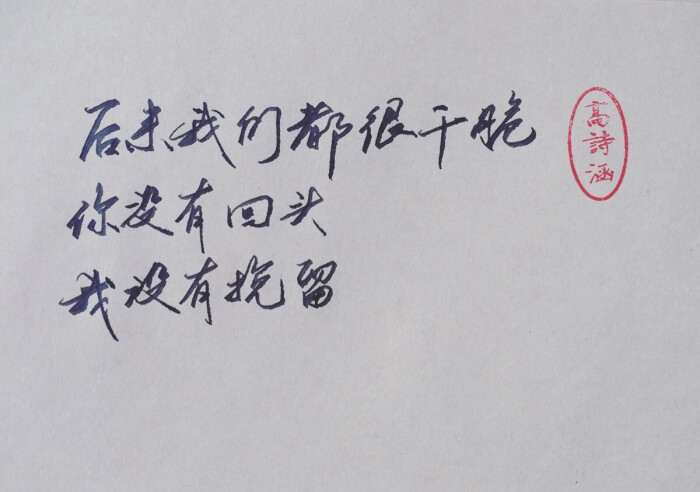 后来我们都很干脆
你没有回头
我没有挽留
高詩涵